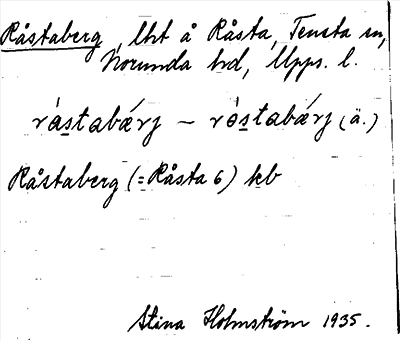 Råstaberg, lht å Råsta, Tensta sn,
Norunda hd, Upps. l.
rá̱stabǽrj – ró̱stabǽrj (ä.)
Råstaberg (= Råsta 6) kb
Stina Holmström 1935.